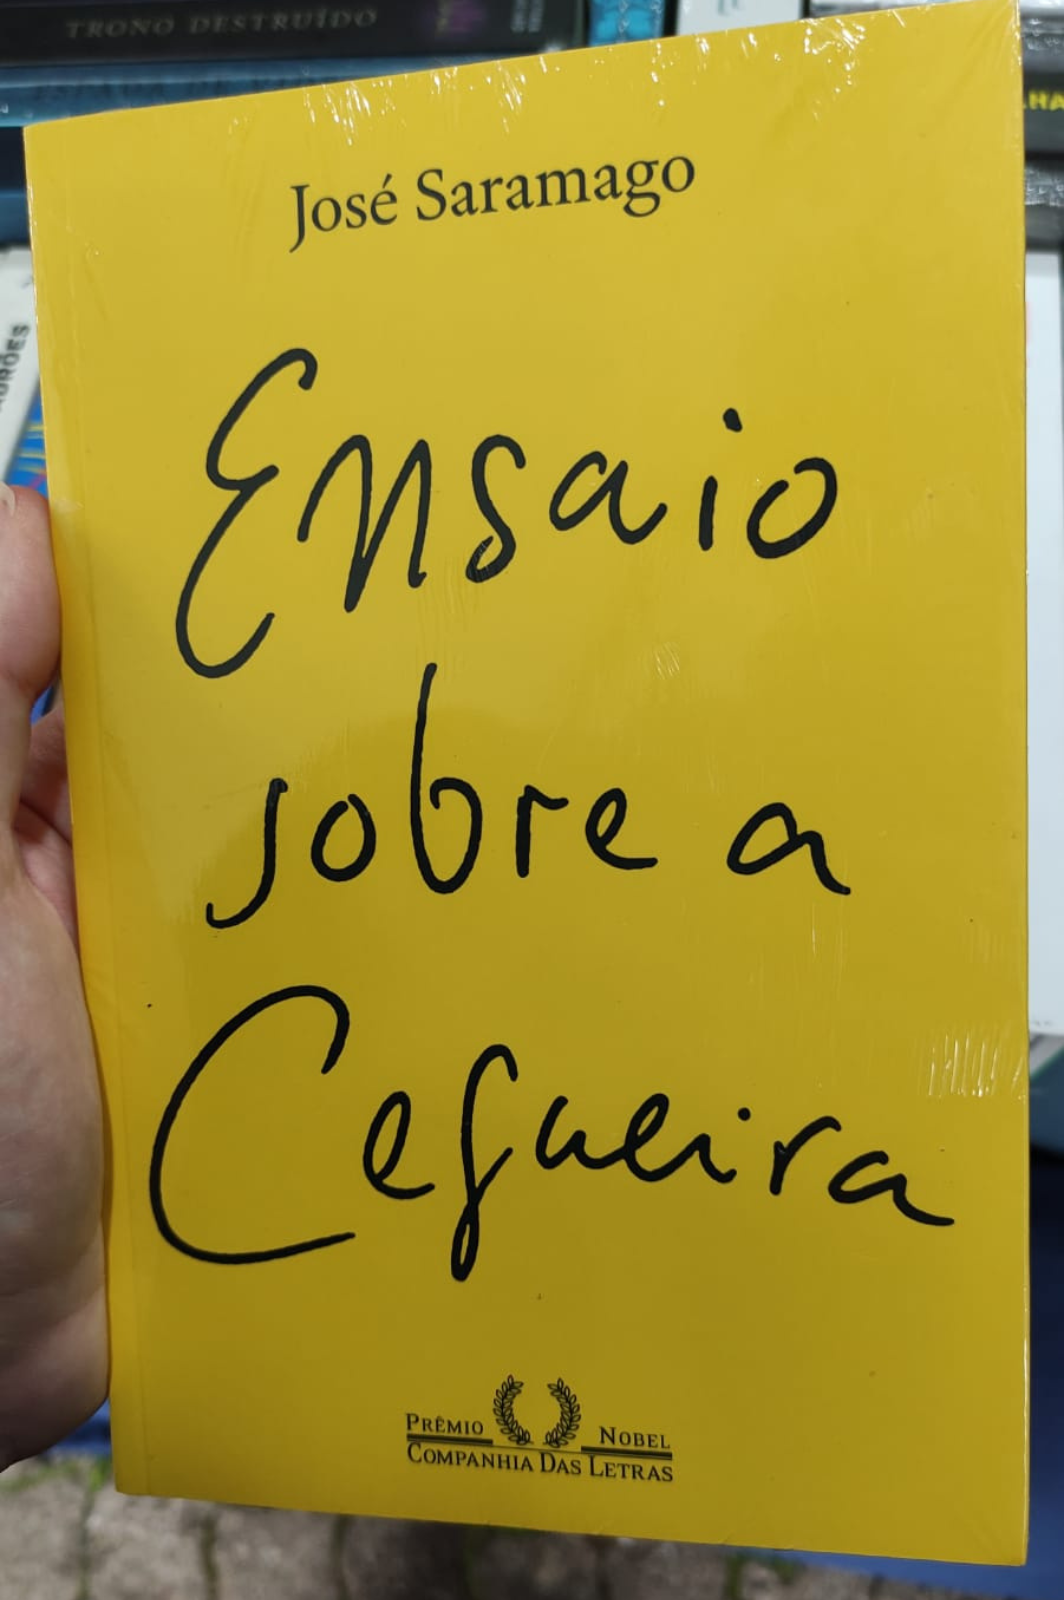 TRONO DESTRUÍDO
José Saramago
Ensaio
sobre a
Cegueira
PRÊMIO NOBEL
COMPANHIA DAS LETRAS